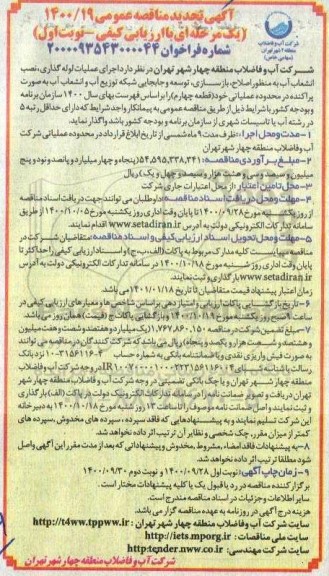 آگهی تجدید مناقصه عمومی ۱۴۰۰/۱۹
(یک مرحله ای با ارزیابی کیفی - نوبت اول)
شماره فراخوان ۲۰۰۰۰۹۳۵۴۳۰۰۰۰۴۴
شرکت آب و فاضلاب
منطقه ۴ شهر تهران
(سهامی خاص)
شرکت آب و فاضلاب منطقه چهار شهر تهران در نظر دارد اجرای عملیات لوله گذاری، نصب
انشعاب آب به منظور اصلاح، بازسازی، توسعه و جابجایی شبکه توزیع آب و انشعاب آب به صورت
پراکنده در محدوده عملیاتی خود (قطعه چهارم) را بر اساس فهرست بهای سال ۱۴۰۰ سازمان برنامه
و بودجه کشور با شرایط ذیل از طریق مناقصه عمومی به پیمانکار واجد شرایط که دارای حداقل رتبه ۵
در رشته آب یا تاسیسات شهری از سازمان برنامه و بودجه کشور باشد واگذار نماید.
۱- مدت و محل اجرا: ظرف مدت ۹ ماه شمسی از تاریخ ابلاغ قرارداد در محدوده عملیاتی شرکت
آب و فاضلاب منطقه چهار شهر تهران
۲- مبلغ برآوردی مناقصه: ۵۴,۵۹۵,۳۳۸,۲۴۱ (پنجاه و چهار میلیارد و پانصد و نود و پنج
میلیون و سیصد و سی و هشت هزار و دویست و چهل و یک) ریال
۳- محل تامین اعتبار: از محل اعتبارات جاری شرکت
۴- مهلت و محل دریافت اسناد مناقصه: داوطلبان می توانند جهت دریافت اسناد مناقصه
از روز یکشنبه مورخ ۱۴۰۰/۰۹/۲۸ تا پایان وقت اداری روز یکشنبه مورخ ۱۴۰۰/۱۰/۰۵ از طریق
سامانه تدارکات الکترونیکی دولت به آدرس www.setadiran.ir اقدام نمایند.
۵- مهلت و محل تحویل اسناد ارزیابی کیفی و اسناد مناقصه: متقاضیان شرکت در
مناقصه می بایست کلیه مدارک مربوط به پاکات (الف، ب، ج) و اسناد ارزیابی کیفی را حداکثر تا
پایان وقت اداری روز شنبه مورخ ۱۴۰۰/۱۰/۱۸ در سامانه تدارکات الکترونیکی دولت به آدرس
www.setadiran.ir بارگذاری و ثبت نمایند.
زمان اعتبار پیشنهاد قیمت متقاضیان تا تاریخ ۱۴۰۱/۰۱/۱۸ می باشد
۶- تاریخ بازگشایی پاکات ارزیابی و امتیازدهی براساس شاخص ها و معیارهای ارزیابی کیفی در
ساعت ۹ صبح روز یکشنبه مورخ ۱۴۰۰/۱۰/۱۹ و بازگشایی پاکات ج (قیمت) همان روز می باشد.
۷- مبلغ تضمین شرکت در مناقصه ۱,۷۶۷,۸۶۰,۱۵۰ (یک میلیارد و هفتصد و شصت و هفت میلیون
و هشتصد و شصت هزار و یکصد و پنجاه) ریال می باشد که شرکت کنندگان در مناقصه می توانند
به صورت فیش واریزی نقدی و یا ضمانتنامه بانکی به شماره حساب
در وجه شرکت آب و فاضلاب
منطقه چهار شهر تهران و یا چک بانکی تضمینی در وجه شرکت آب و فاضلاب منطقه چهار شهر
تهران دریافت و تصویر ضمانت نامه را در سامانه تدارکات الکترونیک دولت در پاکت (الف) بارگذاری
و ثبت نمایند و اصل ضمانت نامه موصوف را تا ساعت ۱۳ روز شنبه مورخ ۱۴۰۰/۱۰/۱۸ به دبیرخانه
این شرکت تسلیم نمایند و به پیشنهادهایی که فاقد سپرده، سپرده های مخدوش، سپرده های
کمتر از میزان مقرر، چک شخصی و نظایر آن ترتیب اثر داده نخواهد شد.
۸- به پیشنهادات فاقد امضا، مشروط، مخدوش و پیشنهاداتی که بعد از مدت مقرر این آگهی واصل
شود مطلقا ترتیب اثر داده نخواهد شد.
۹- زمان چاپ آگهی: نوبت اول ۱۴۰۰/۰۹/۲۸ و نوبت دوم ۱۴۰۰/۰۹/۳۰
برگزار کننده مناقصه در رد یا قبول یک یا کلیه پیشنهادات مختار است.
سایر اطلاعات و جزئیات در اسناد مناقصه مندرج است.
هزینه درج آگهی در روزنامه به عهده مناقصه گزار می باشد.
سایت شرکت آب و فاضلاب منطقه چهار شهر تهران: http://t4ww.tppww.ir
سایت ملی مناقصات: http://iets.mporg.ir
سایت شرکت مهندسی: http:tender.nww.co.ir
شرکت آب و فاضلاب منطقه چهار شهر تهران